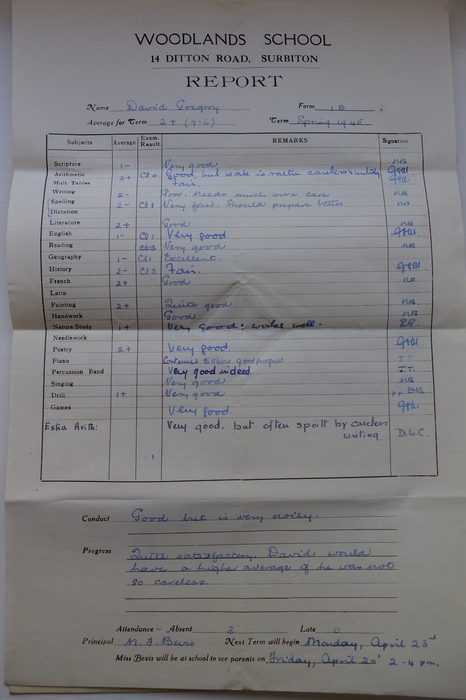 WOODLANDS SCHOOL
14 DITTON ROAD, SURBITON
REPORT
Name David Gregory Form 1B
Average for Term 2+ (7.6) Term Spring 1945
Subjects Average Exam. Result REMARKS Signature
Scripture 1- Very good
Arithmetic 2+ Good, but work is rather careless & untidy
Mult. Tables Fair.
Writing 2- Poor. Needs much more care
Spelling 2- Very fair. Should prepare better
Dictation
Literature 2+ Good
English 1- Very good
Reading Very good
Geography 1- Excellent.
History 2- Fair.
French 2+ Good
Latin
Painting 2+ Quite good
Handwork Good
Nature Study 1+ Very Good: works well.
Needlework
Poetry 2+ Very good
Piano Continues to show good progress
Percussion Band Very good indeed.
Singing Very good
Drill 1+ Very good
Games Very good
Extra Arith: Very good, but often spoilt by careless
writing D.L.C.
Conduct Good but is very noisy.
Progress Quite satisfactory. David would
have a higher average if he was not
so careless.
Attendance – Absent 3 Late 0
Principal Next Term will begin Monday, April 23rd
Miss Bevis will be at school to see parents on Friday, April 20th 2-4 pm.